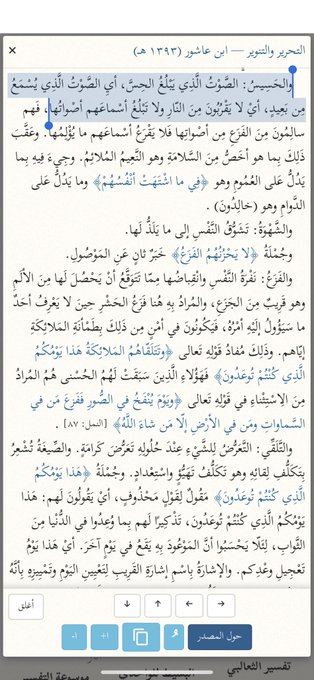 التحرير والتنوير — ابن عاشور (١٣٩٣ هـ)
×
والحَسِيسُ: الصَّوْتُ الَّذِي يَبْلُغُ الحِسَّ، أيِ الصَّوْتُ الَّذِي يُسْمَعُ
مِن بَعِيدٍ، أيْ لا يَقْرُبُونَ مِنَ النّارِ ولا تَبْلُغُ أسْماعَهم أصْواتُها، فَهم
سالِمُونَ مِنَ الفَزَعِ مِن أصْواتِها فَلا يَقْرَعُ أسْماعَهم ما يُؤْلِمُها. وعَقَّبَ
ذَلِكَ بِما هو أخَصُّ مِنَ السَّلامَةِ وهو النَّعِيمُ المُلائِمُ. وجِيءَ فِيهِ بِما
يَدُلُّ عَلى العُمُومِ وهو ﴿فِي ما اشْتَهَتْ أنْفُسُهُمْ﴾ وما يَدُلُّ عَلى
الدَّوامِ وهو (خالِدُونَ) .
والشَّهْوَةُ: تَشَوُّقُ النَّفْسِ إلى ما يَلَذُّ لَها.
وجُمْلَةُ ﴿لا يَحْزُنُهُمُ الفَزَعُ﴾ خَبَرٌ ثانٍ عَنِ المَوْصُولِ.
والفَزَعُ: نَفْرَةُ النَّفْسِ وانْقِباضُها مِمّا تَتَوَقَّعُ أنْ يَحْصُلَ لَها مِنَ الألَمِ
وهو قَرِيبٌ مِنَ الجَزَعِ، والمُرادُ بِهِ هُنا فَزَعُ الحَشْرِ حِينَ لا يَعْرِفُ أحَدٌ
ما سَيَؤُولُ إلَيْهِ أمْرُهُ، فَيَكُونُونَ في أمْنٍ مِن ذَلِكَ بِطَمْأنَةِ المَلائِكَةِ
إيّاهم. وذَلِكَ مُفادُ قَوْلِهِ تَعالى ﴿وتَتَلَقّاهُمُ المَلائِكَةُ هَذا يَوْمُكُمُ
الَّذِي كُنْتُمْ تُوعَدُونَ﴾ فَهَؤُلاءِ الَّذِينَ سَبَقَتْ لَهُمُ الحُسْنى هُمُ المُرادُ
مِنَ الِاسْتِثْناءِ في قَوْلِهِ تَعالى ﴿ويَوْمَ يُنْفَخُ في الصُّورِ فَفَزِعَ مَن في
السَّماواتِ ومَن في الأرْضِ إلّا مَن شاءَ اللَّهُ﴾ [النمل: ٨٧] .
والتَّلَقِّي: التَّعَرُّضُ لِلشَّيْءِ عِنْدَ حُلُولِهِ تَعَرُّضَ كَرامَةٍ. والصِّيغَةُ تُشْعِرُ
بِتَكَلُّفِ لِقائِهِ وهو تَكَلُّفُ تَهَيُّؤٍ واسْتِعْدادٍ. وجُمْلَةُ ﴿هَذا يَوْمُكُمُ
الَّذِي كُنْتُمْ تُوعَدُونَ﴾ مَقُولٌ لِقَوْلٍ مَحْذُوفٍ، أيْ يَقُولُونَ لَهم: هَذا
يَوْمُكُمُ الَّذِي كُنْتُمْ تُوعَدُونَ، تَذْكِيرًا لَهم بِما وُعِدُوا في الدُّنْيا مِنَ
الثَّوابِ، لِئَلّا يَحْسَبُوا أنَّ المَوْعُودَ بِهِ يَقَعُ في يَوْمٍ آخَرَ. أيْ هَذا يَوْمُ
تَعْجِيلِ وعْدِكم. والإشارَةُ بِاسْمِ إشارَةِ القَرِيبِ لِتَعْيِينِ اليَوْمِ وتَمْيِيزِهِ بِأنَّهُ
→ ← ↑ ↓
أغلق
حول المصدر
+١ -١
تفسير الثعالبي
موسوعة التفسير